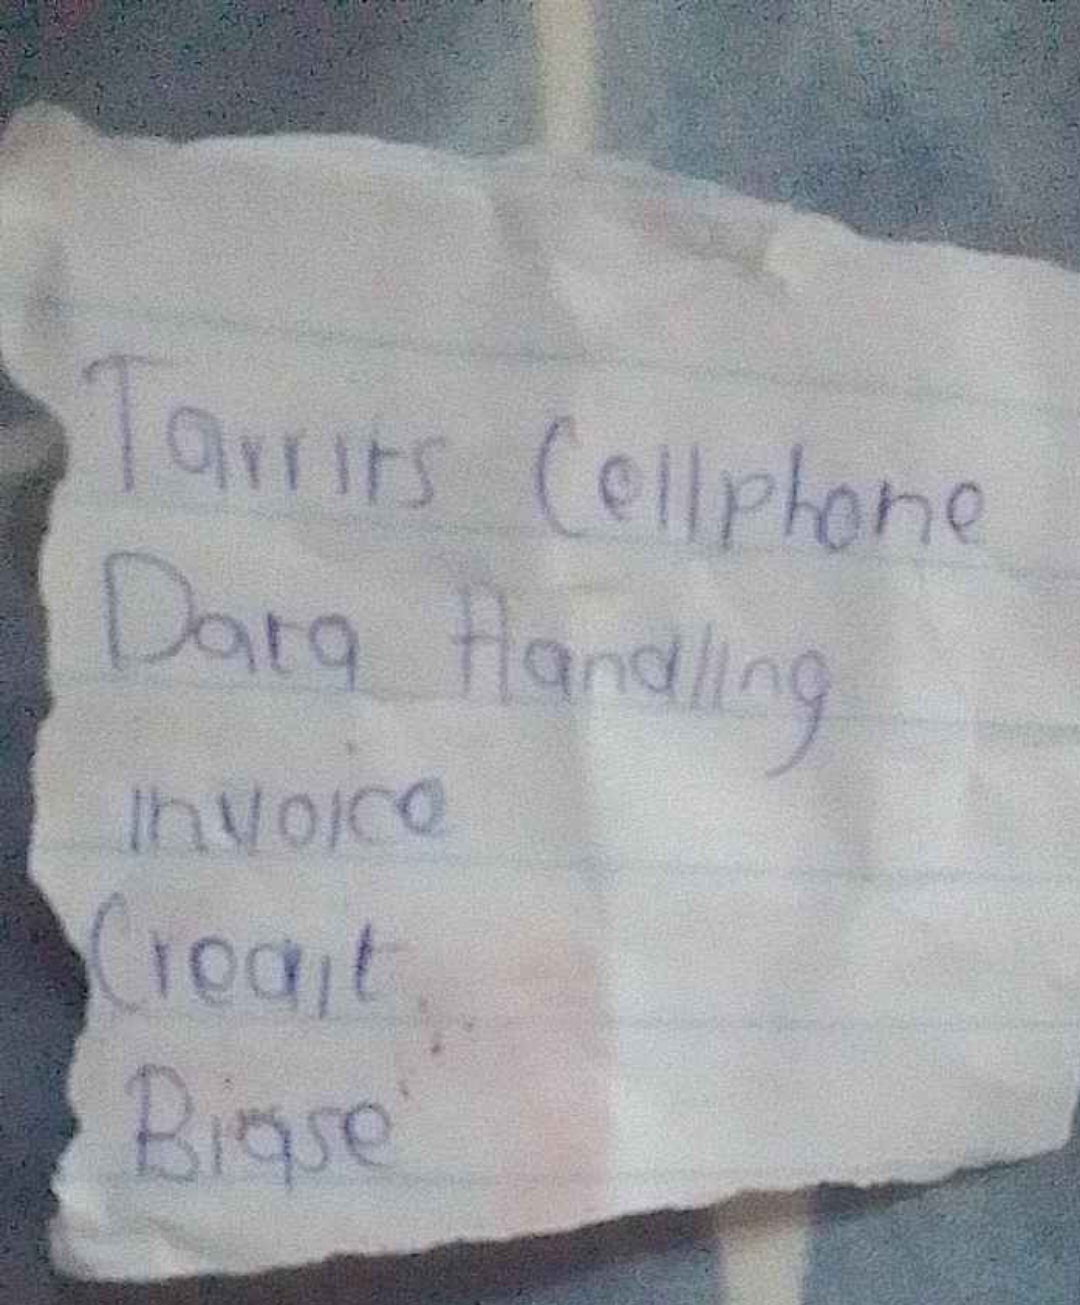 Tarrifs Cellphone
Data Handling
invoice
Credit
Biase